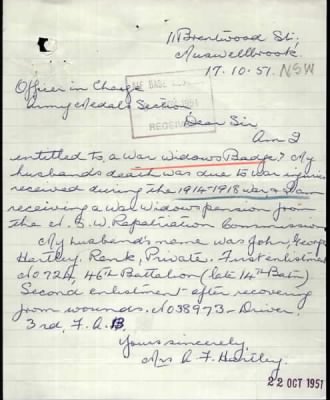 11 Brentwood St;
Muswellbrook.
17.10.51. NSW
Officer in Charge
Army Medals Section
RECEIVED
Dear Sir
Am I
entitled to, a War Widows Badge? My
husbands death was due to war injuries
received during the 1914-1918 war & I am
receiving a War Widows pension from
the N.S.W. Repatriation Commission
My husband's name was John, George
Hartley. Rank, Private. First enlistment
No 724, 46th Battalion (late 14th Batn)
Second enlistment after recovering
from wounds. No 38973 - Driver.
3rd. F.A.B.
Yours sincerely,
Mrs A. F. Hartley.
22 OCT 1951